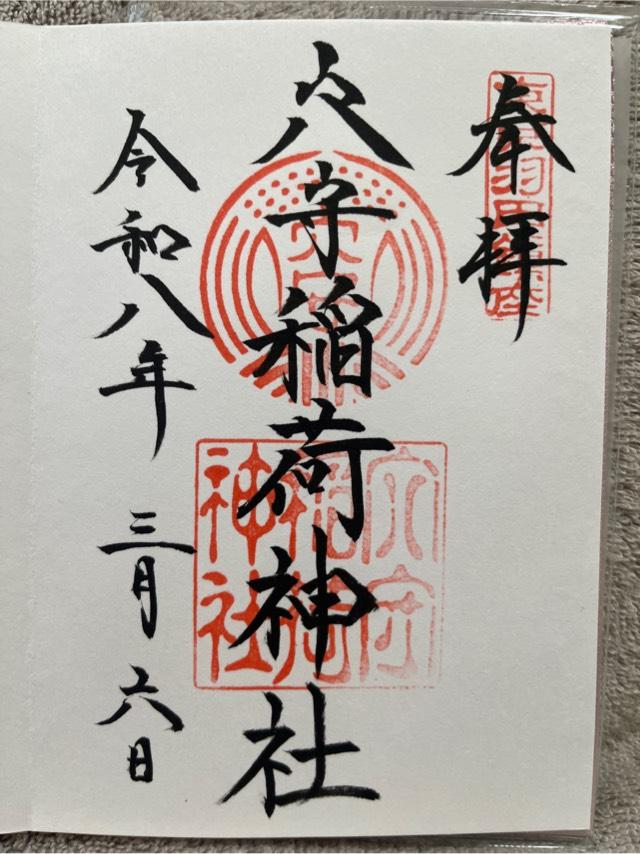 奉拝
穴守稲荷神社
穴守
稲荷
神社
令和八年 三月 六日